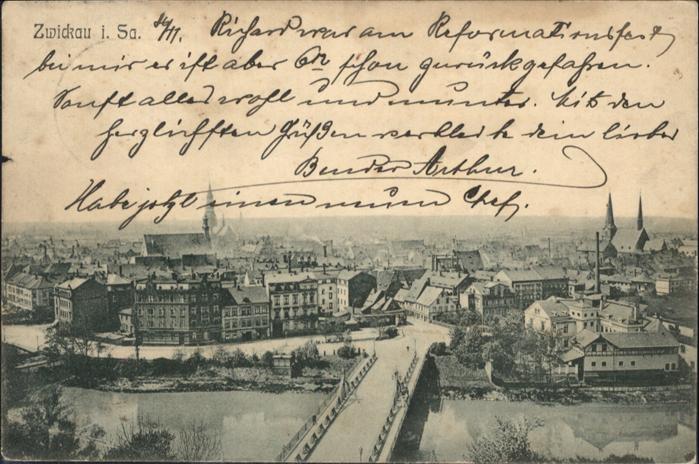 Zwickau i. Sa. Richard war am Reformationsfest
bei mir er ist aber schon zurückgefahren.
Sonst alles wohl und munter. Mit den
herzlichsten Grüßen verbleibe dein lieber
Bruder Arthur.
Habe jetzt einen neuen Chef.